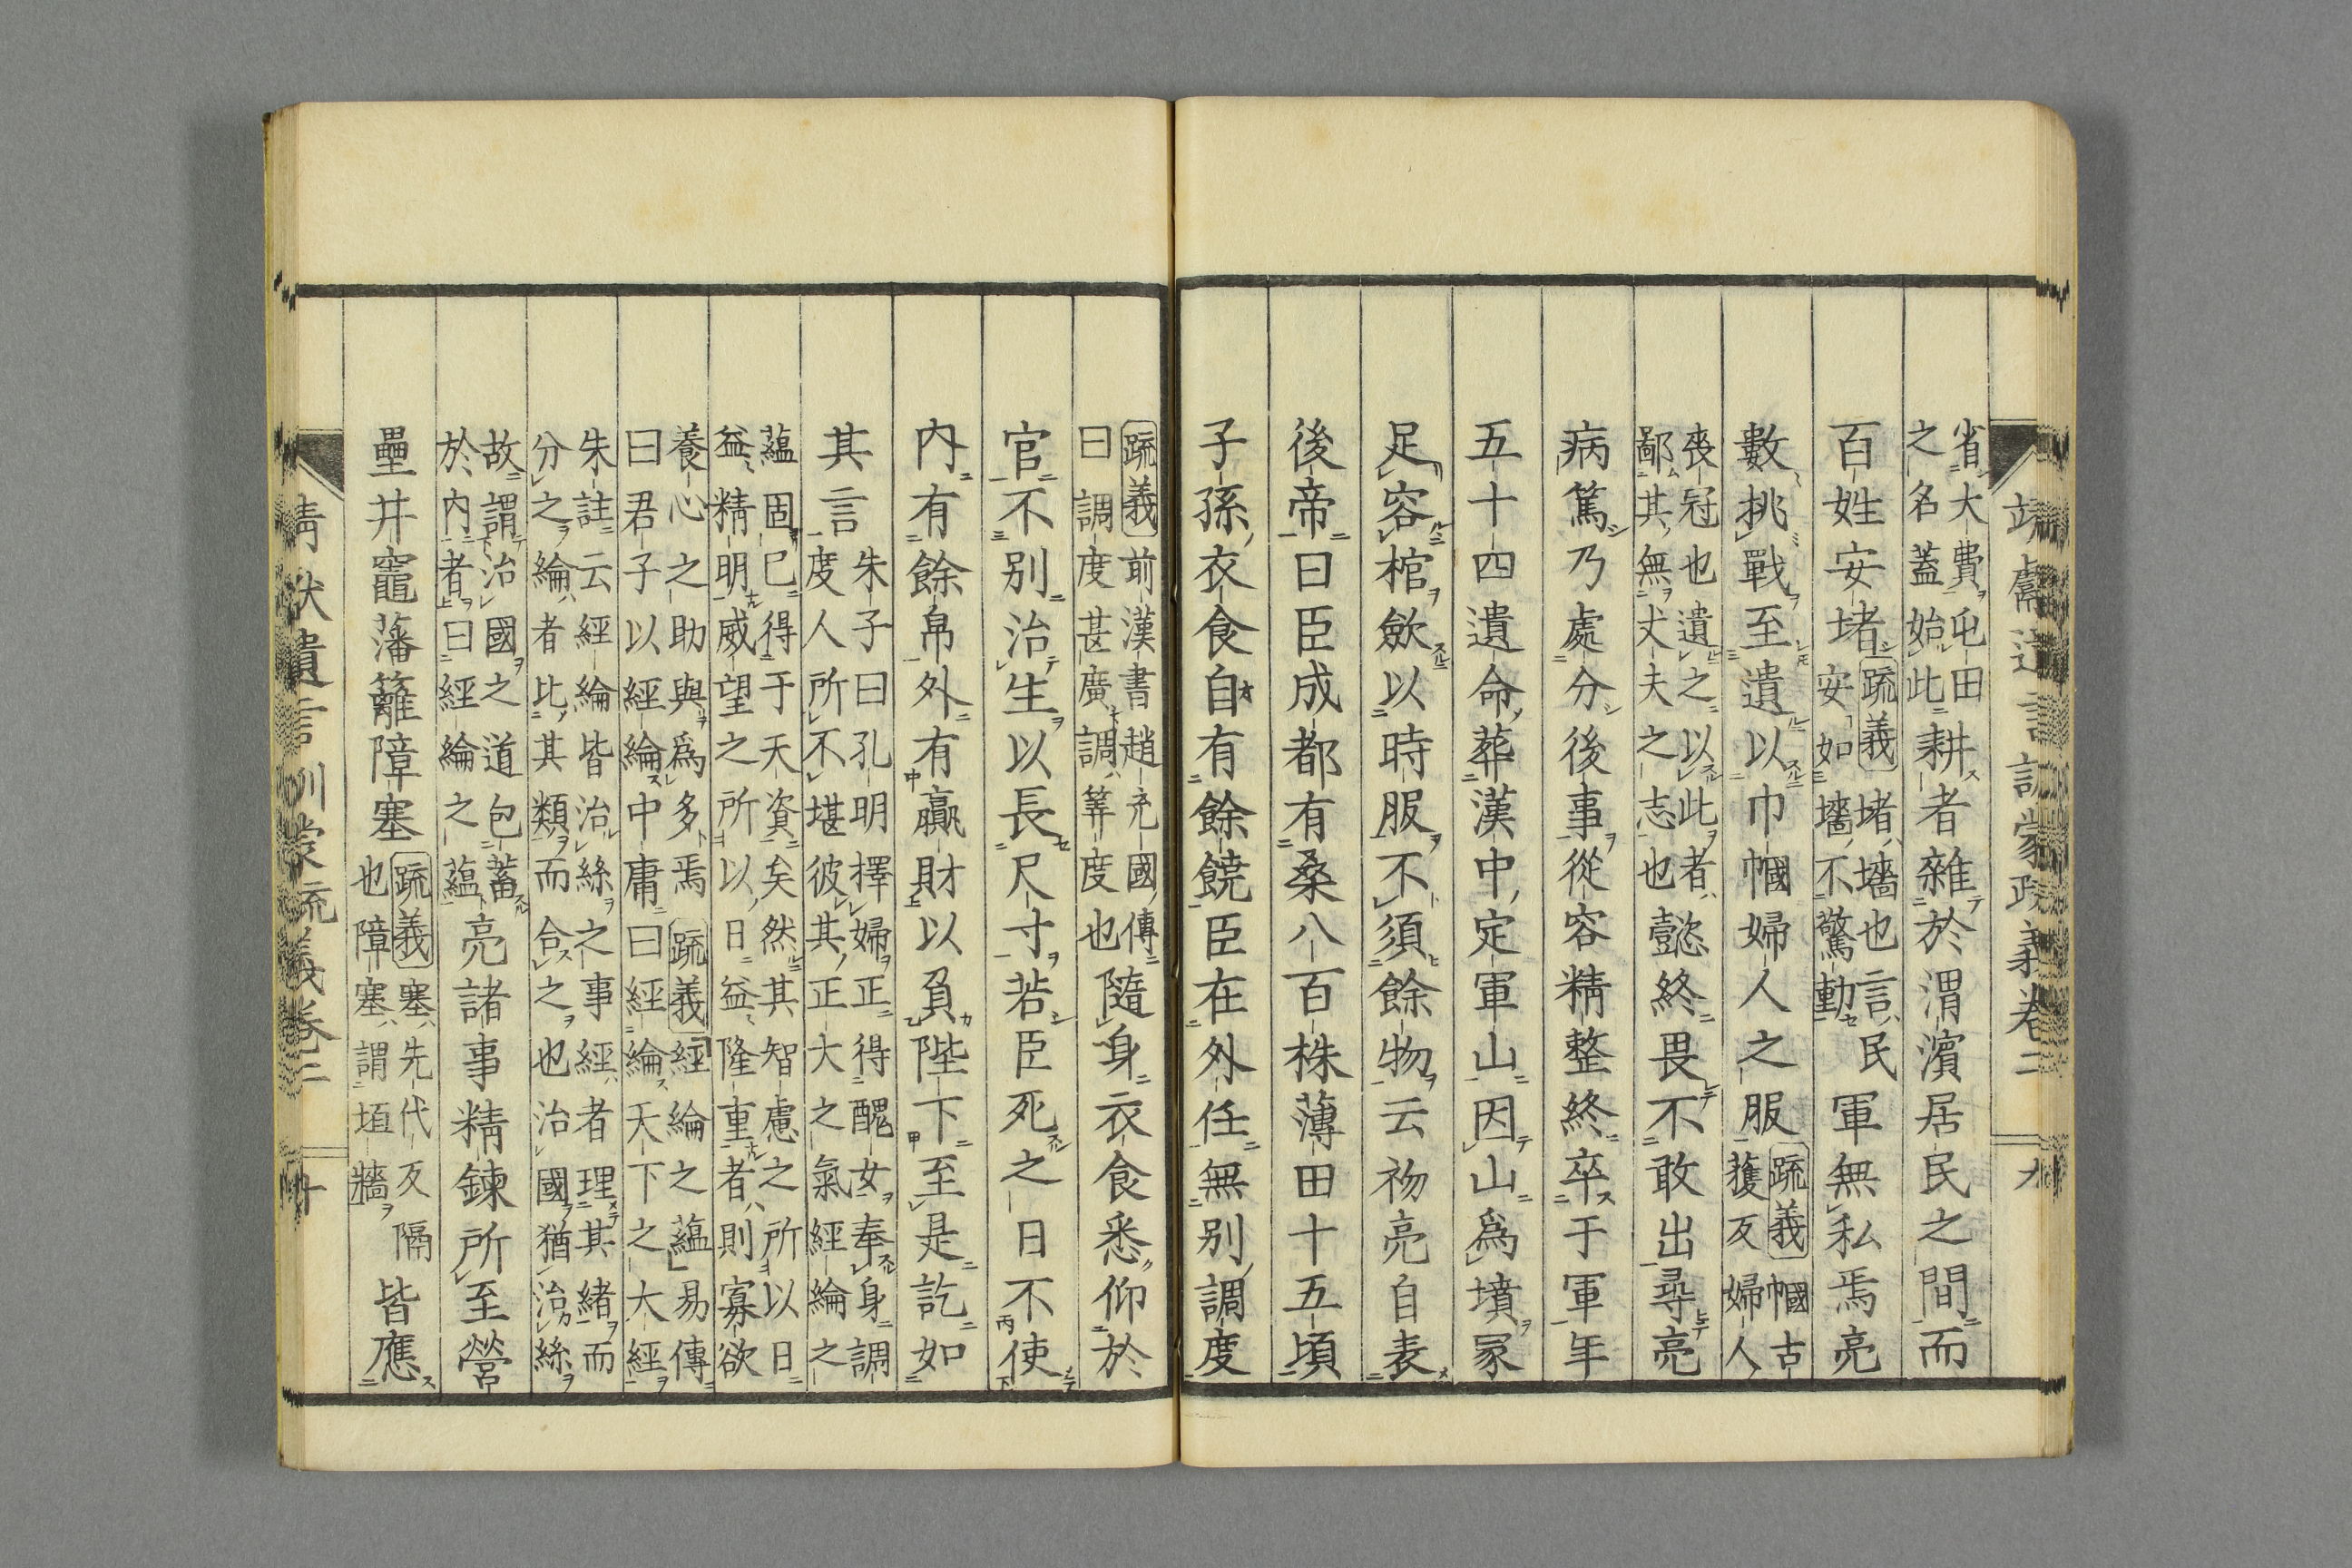 省大費屯田
之名蓋始此
耕者雜於渭濱居民之間而
百姓安堵
疏義堵墻也言民
安如墻不驚動
軍無私焉亮
數挑戰至遺以巾幗婦人之服
疏義幗古
獲反婦人
喪冠也遺之以此者
鄙其無丈夫之志也
懿終畏不敢出尋亮
病篤乃處分後事從容精整終卒于軍年
五十四遺命葬漢中定軍山因山爲墳冢
足容棺斂以時服不須餘物云初亮自表
後帝曰臣成都有桑八百株薄田十五頃
子孫衣食自有餘饒臣在外任無別調度
疏義前漢書趙充國傳
曰調度甚廣調筭度也
隨身衣食悉仰於
官不別治生以長尺寸若臣死之日不使
內有餘帛外有贏財以負陛下至是訖如
其言
朱子曰孔明擇婦正得醜女奉身調
度人所不堪彼其正大之氣經綸之
蘊固已得于天資矣然其智慮之所以日
益精明威望之所以日益隆重者則寡欲
養心之助與爲多焉疏義經綸之蘊易傳
曰君子以經綸中庸曰經綸天下之大經
朱註云經綸皆治絲之事經者理其緒而
分之綸者比其類而合之也治國猶治絲
故謂治國之道包蓄
於內者曰經綸之蘊
亮諸事精鍊所至營
壘井竈藩籬障塞
疏義塞先代反隔
也障塞謂垣牆
皆應
靖獻遺言訓蒙疏義卷二 九
靖獻遺言訓蒙疏義卷二 十